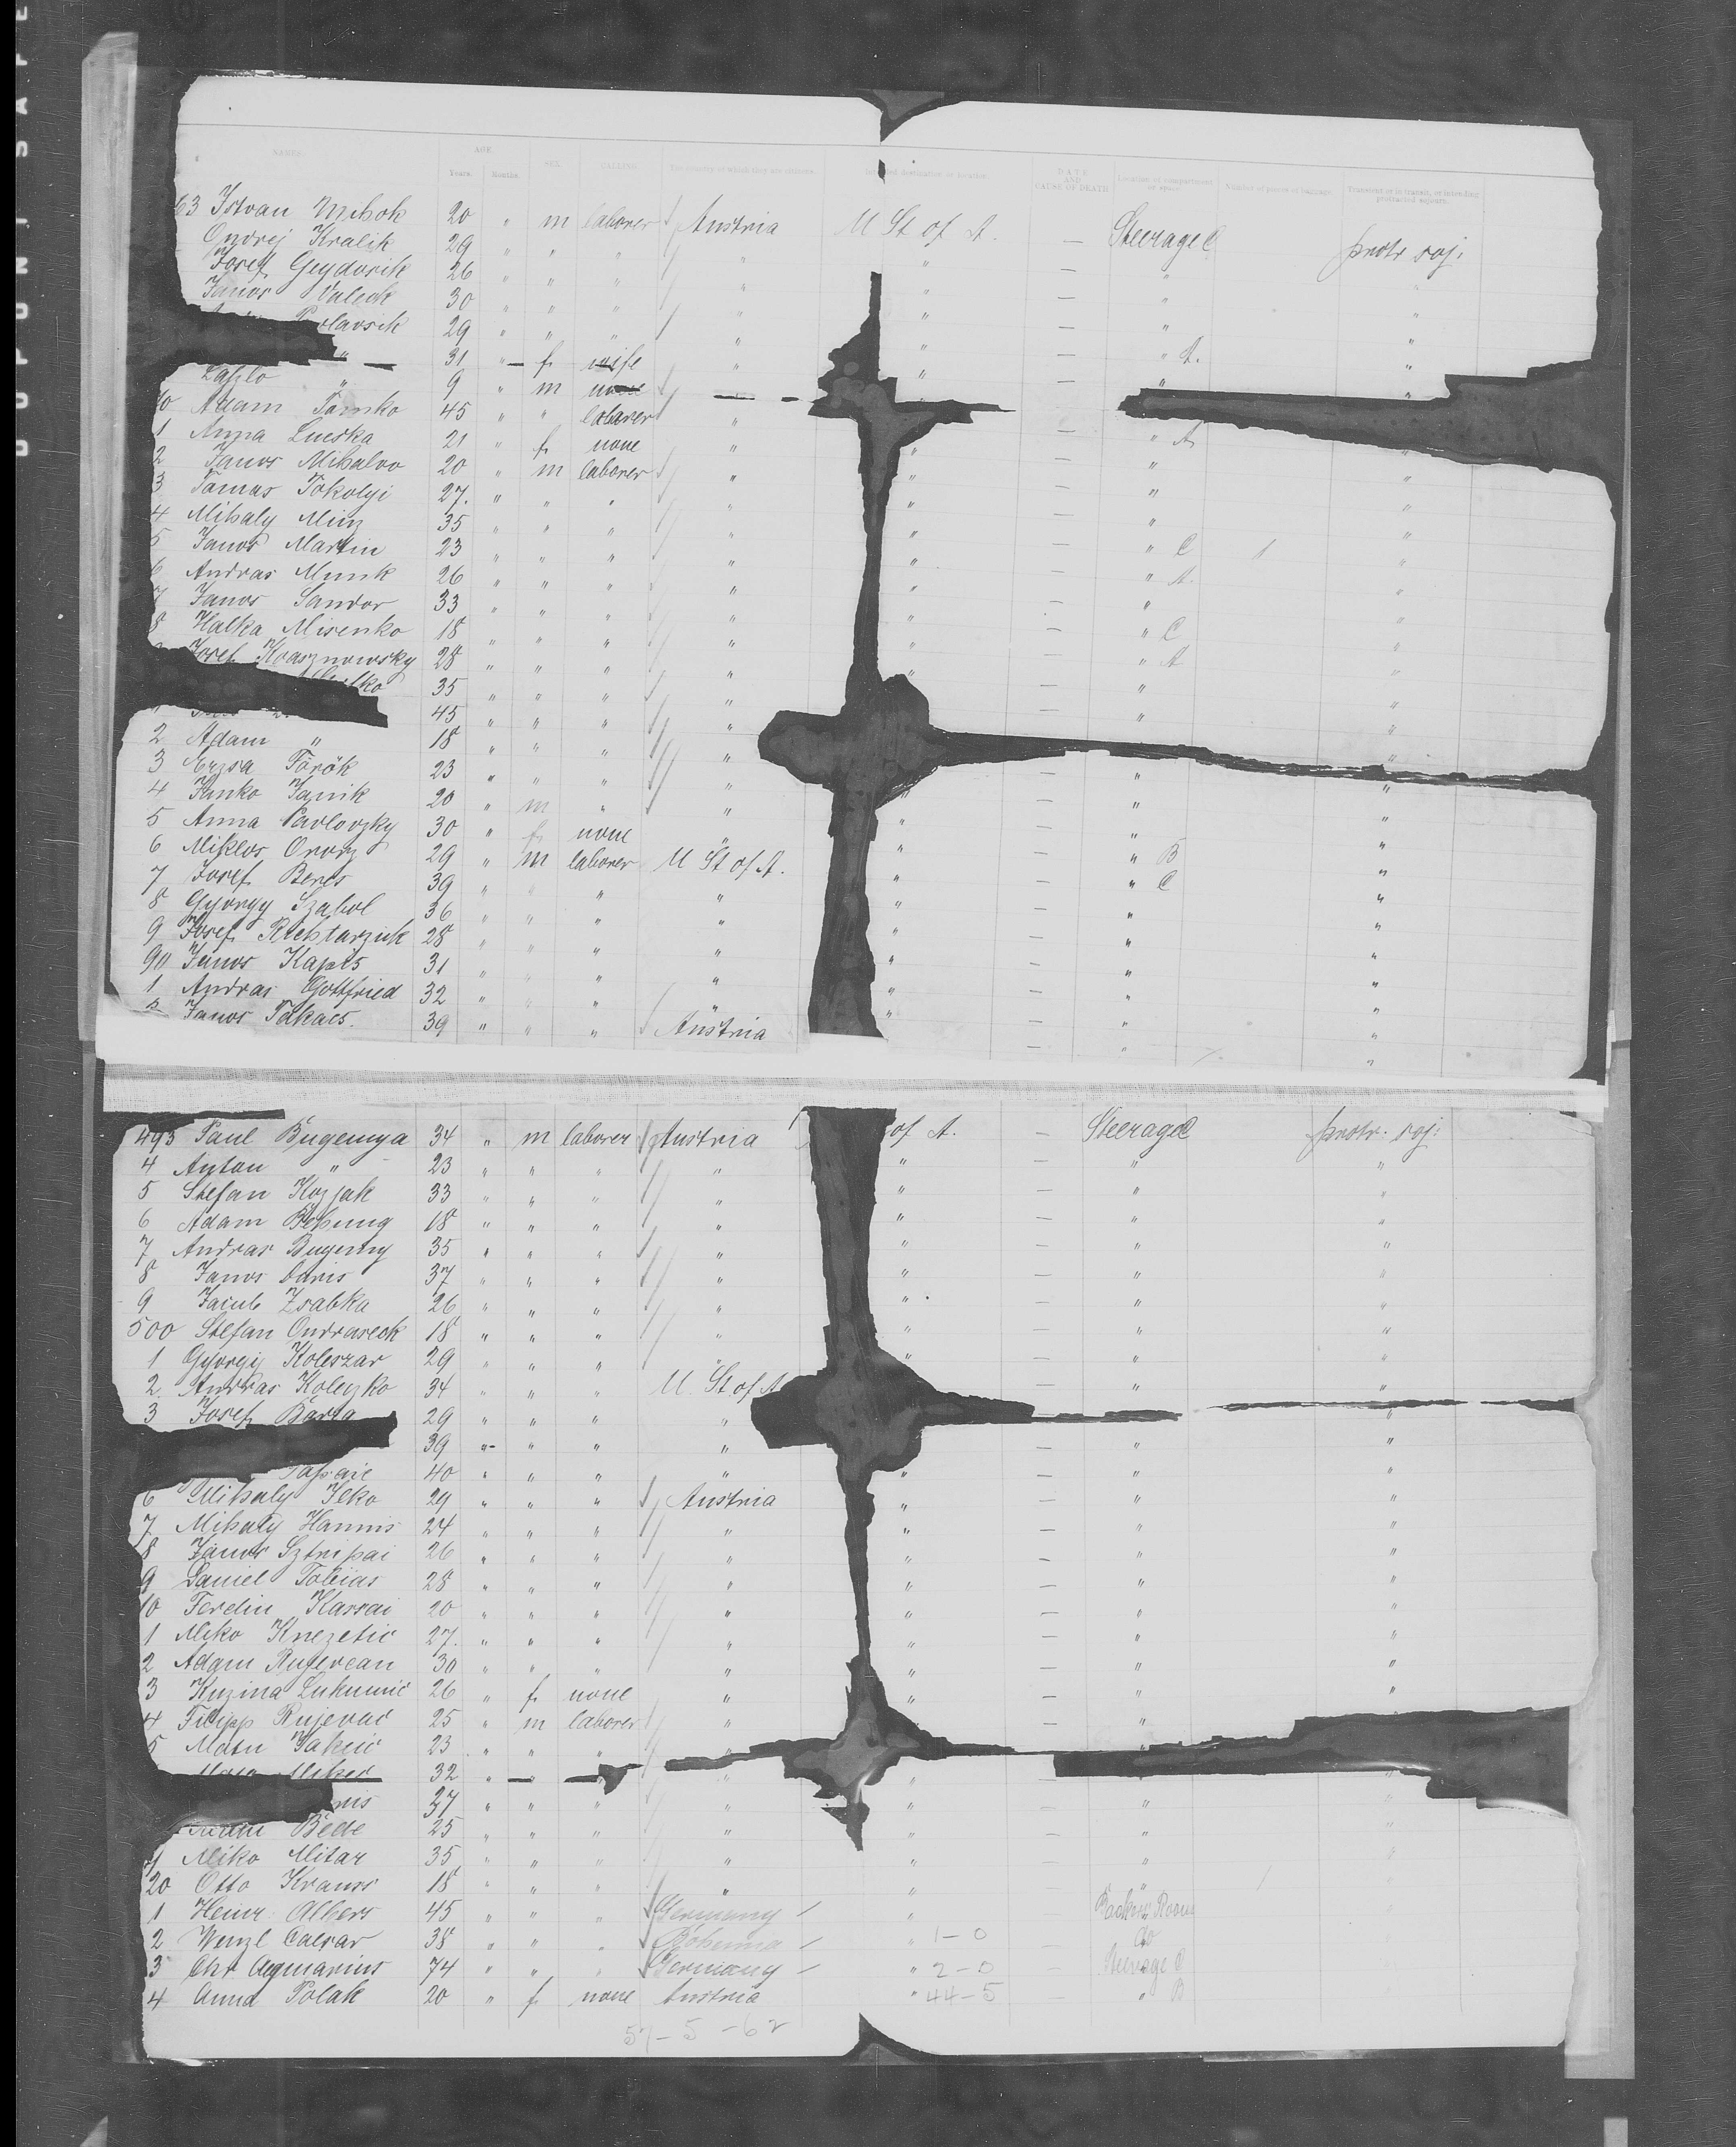 NAMES. AGE. Years. Months. SEX. CALLING. The country of which they are citizens. Intended destination or location. DATE AND CAUSE OF DEATH Location of compartment or space. Number of pieces of baggage. Transient or in transit, or intending protracted sojourn.
63 Istvan Mihok 20 " m laborer Austria U St of A. — Steerage C protr soj.
Ondrej Kralik 29 " " " " " — " "
Josef Geydosik 26 " " " " " — " "
Janos Valeck 30 " " " " " — " "
29 " " " " " — " "
" 31 " f wife " " — " A. "
Laszlo " 9 " m none "
70 Adam Tomko 45 " " laborer "
1 Anna Lucska 21 " f none " — " A
2 Janos Mihalvo 20 " m laborer " " — " "
3 Tamas Tokolyi 27. " " " " " "
4 Mihaly Minz 35 " " " " " "
5 Janos Martin 23 " " " " " " C 1 "
6 Andras Munk 26 " " " " " " A. "
7 Janos Sandor 33 " " " " " — " "
8 Halka Misenko 18 " " " " " — " C "
Josef Koasznowsky 28 " " " " " — " A "
35 " " " " — " "
45 " " " " — " "
2 Adam " 18 " " " "
3 Erzsa Török 23 " " " " — " "
4 Janko Janik 20 " m " " " — " "
5 Anna Pavlovzky 30 " f none " " — " "
6 Miklos Orosz 29 " m laborer U St of A. " — " B "
7 Josef Beres 39 " " " " " — " C "
8 Gyorgy Szabol 36 " " " " " — " "
9 Josef Richtarzik 28 " " " " " — " "
90 Janos Kapis 31 " " " " " — " "
1 Andras Gottfried 32 " " " " " — " "
2 Janos Takacs. 39 " " " Austria — " "
493 Paul Bugemya 34 " m laborer Austria of A. — Steerage C protr. soj:
4 Anton " 23 " " " " " — " "
5 Stefan Kozjak 33 " " " " " — " "
6 Adam Behung 18 " " " " " — " "
7 Andras Bugemy 35 " " " " " — " "
8 Janos Duris 37 " " " " " — " "
9 Jacub Zsabka 26 " " " " " — " "
500 Stefan Ondraseck 18 " " " " " — " "
1 Gyorgy Koleszar 29 " " " " " — " "
2 Andras Koleczko 34 " " " U. St. of A — " "
3 Josef Barta 29 " " " " "
39 " " " " — " "
40 " " " " " — " "
6 Mihaly Ilko 29 " " " Austria " — " "
7 Mihaly Hannis 24 " " " " " — " "
8 Janos Sztripai 26 " " " " " — " "
9 Daniel Tobias 28 " " " " " — " "
10 Ferdin Kassai 20 " " " " " — " "
1 Miko Knezetic 27. " " " " " — " "
2 Adam Rujevcan 30 " " " " " — " "
3 Kuzina Lukunic 26 " f none " " — " "
4 Filipp Rujevac 25 " m laborer " — "
5 Mato Jakcic 23 " " " "
32 " " " " "
37 " " " " " — " "
Bede 25 " " " " " — " "
Miko Mitar 35 " " " " " — " "
20 Otto Krauss 18 " " " " " — " 1 "
1 Heinr. Albers 45 " " " Germany " "
2 Wenzl Caesar 38 " " " Bohemia " 1-0 — do
3 Chr. Aegmarius 74 " " " Germany " 2-0 — Steerage C
4 Anna Polak 20 " f none Austria " 44-5 — " B
57-5-62